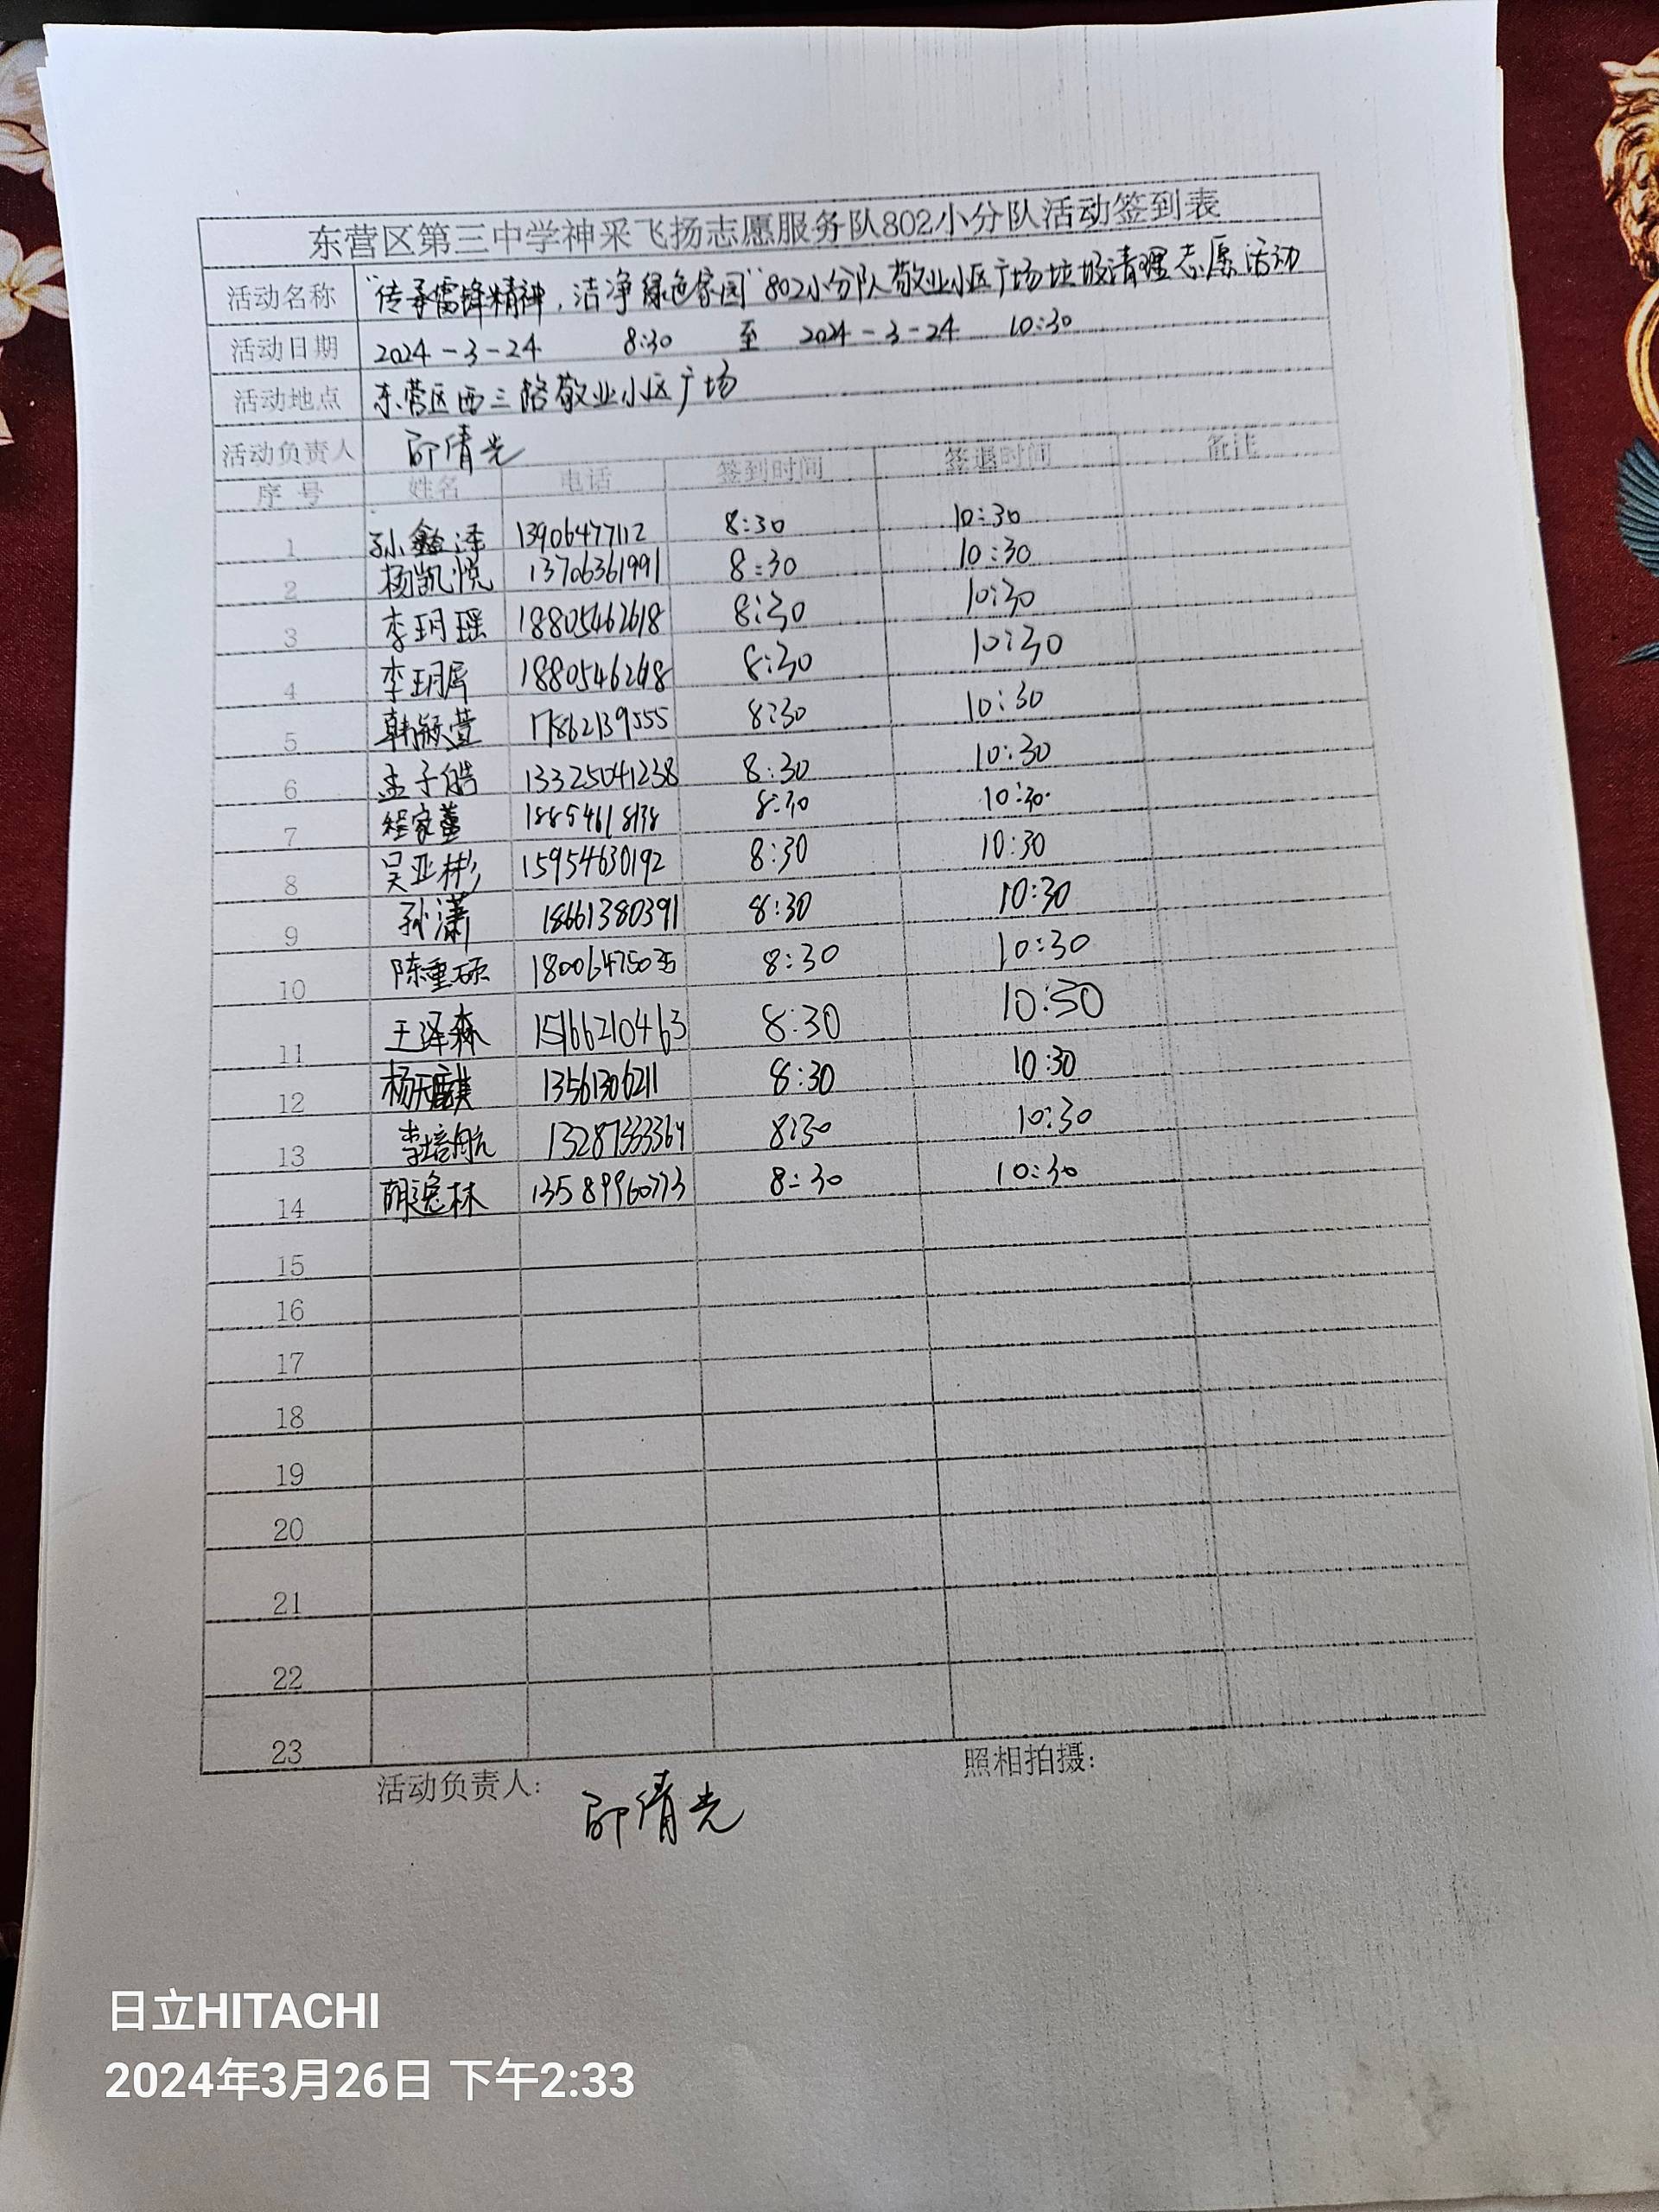 东营区第三中学神采飞扬志愿服务队802小分队活动签到表
活动名称 "传承雷锋精神，洁净绿色家园"802小分队敬业小区广场垃圾清理志愿活动
活动日期 2024-3-24 8:30 至 2024-3-24 10:30
活动地点 东营区西三路敬业小区广场
活动负责人 邵倩光
序号 姓名 电话 签到时间 签退时间 备注
1 孙鑫泽 13906477112 8:30 10:30
2 杨凯悦 13706361991 8:30 10:30
3 李玥瑶 18805462618 8:30 10:30
4 18805462618 8:30 10:30
5 韩颖萱 17862139555 8:30 10:30
6 孟子皓 13325041238 8:30 10:30
7 程家萱 8:30 10:30
8 吴亚彬 15954630192 8:30 10:30
9 孙潇 18661380391 8:30 10:30
10 陈重硕 8:30 10:30
11 王泽森 15166210463 8:30 10:30
12 杨天麒 13561306211 8:30 10:30
13 李培航 8:30 10:30
14 胡逸林 13589960773 8:30 10:30
15
16
17
18
19
20
21
22
23
活动负责人: 邵倩光 照相拍摄:
日立HITACHI
2024年3月26日 下午2:33